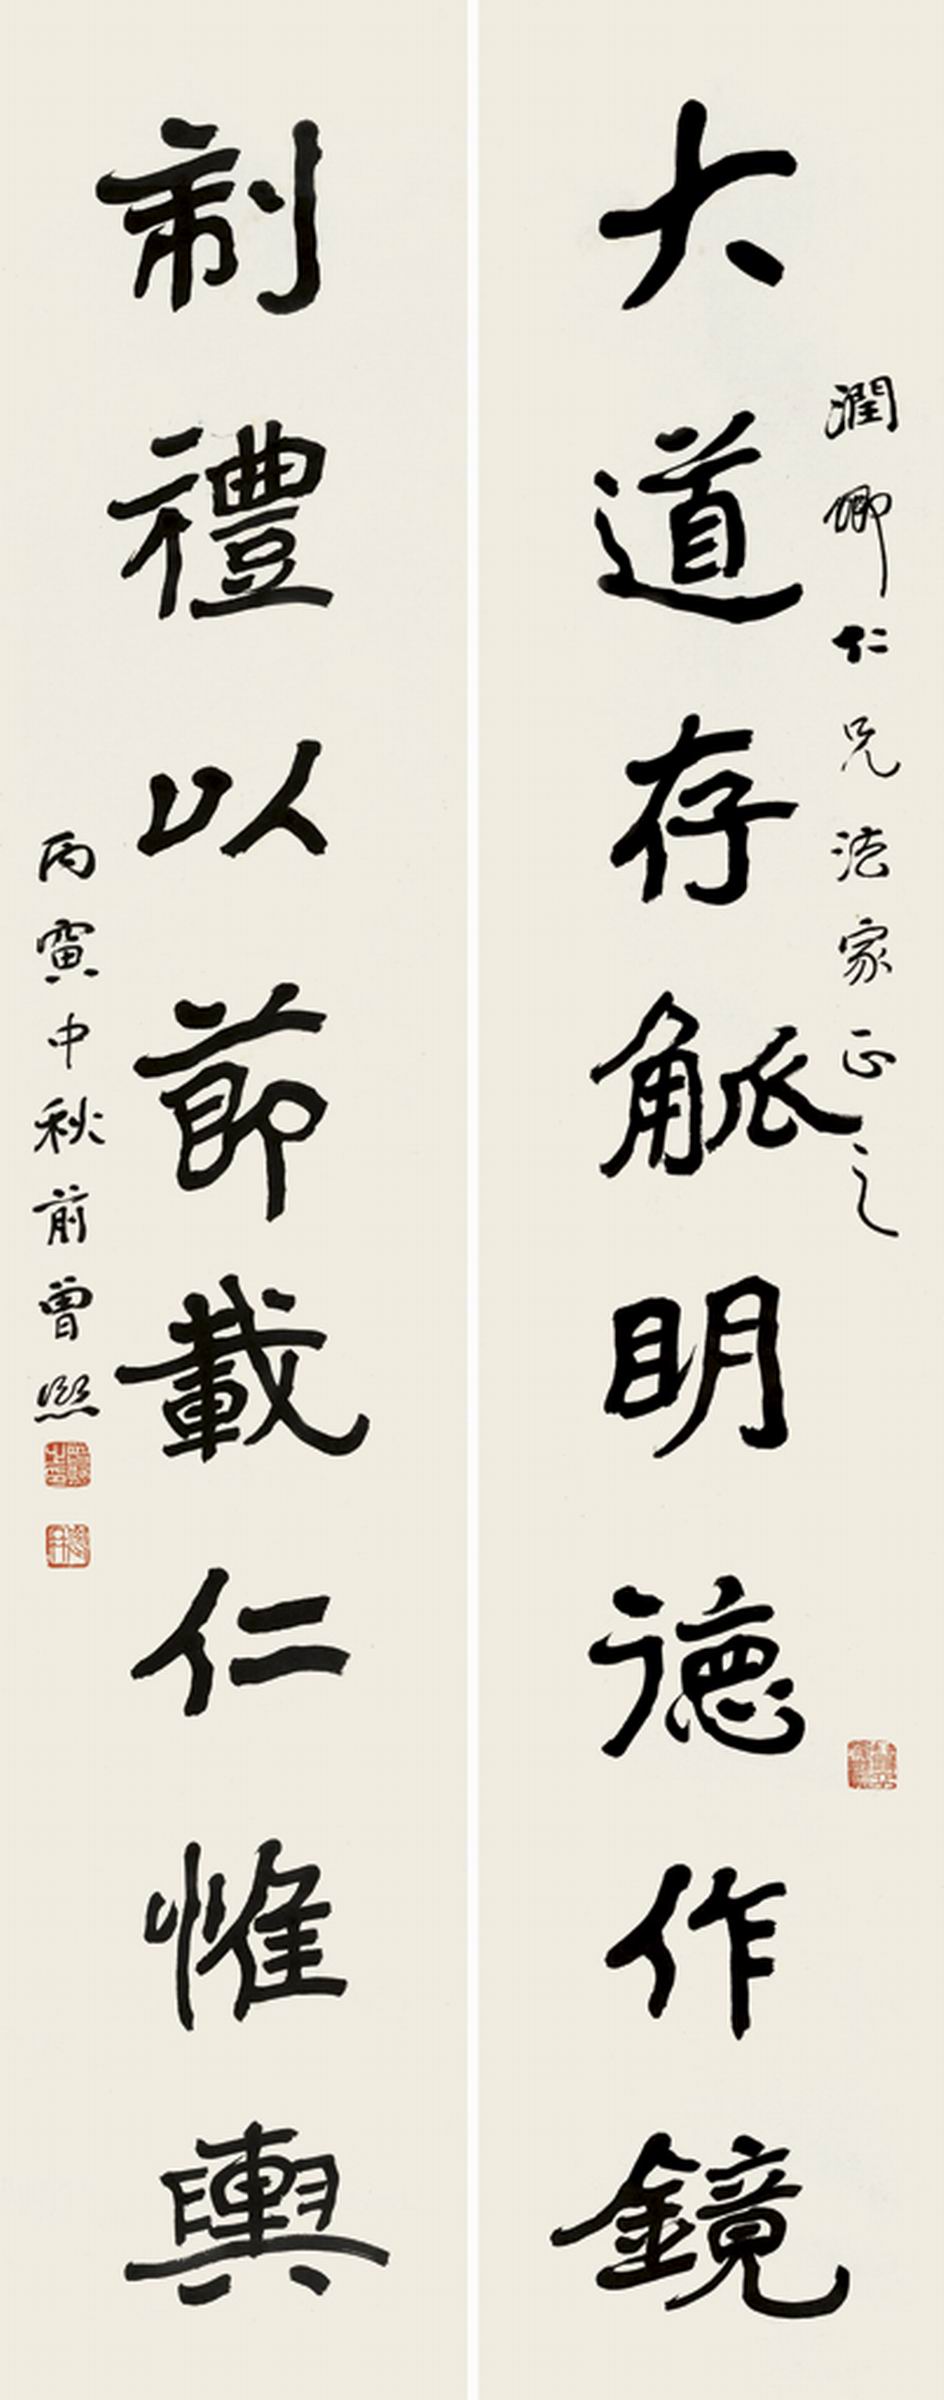 潤卿仁兄法家正之
大道存觚明德作鏡
制禮以節載仁惟輿
丙寅中秋前曾熙